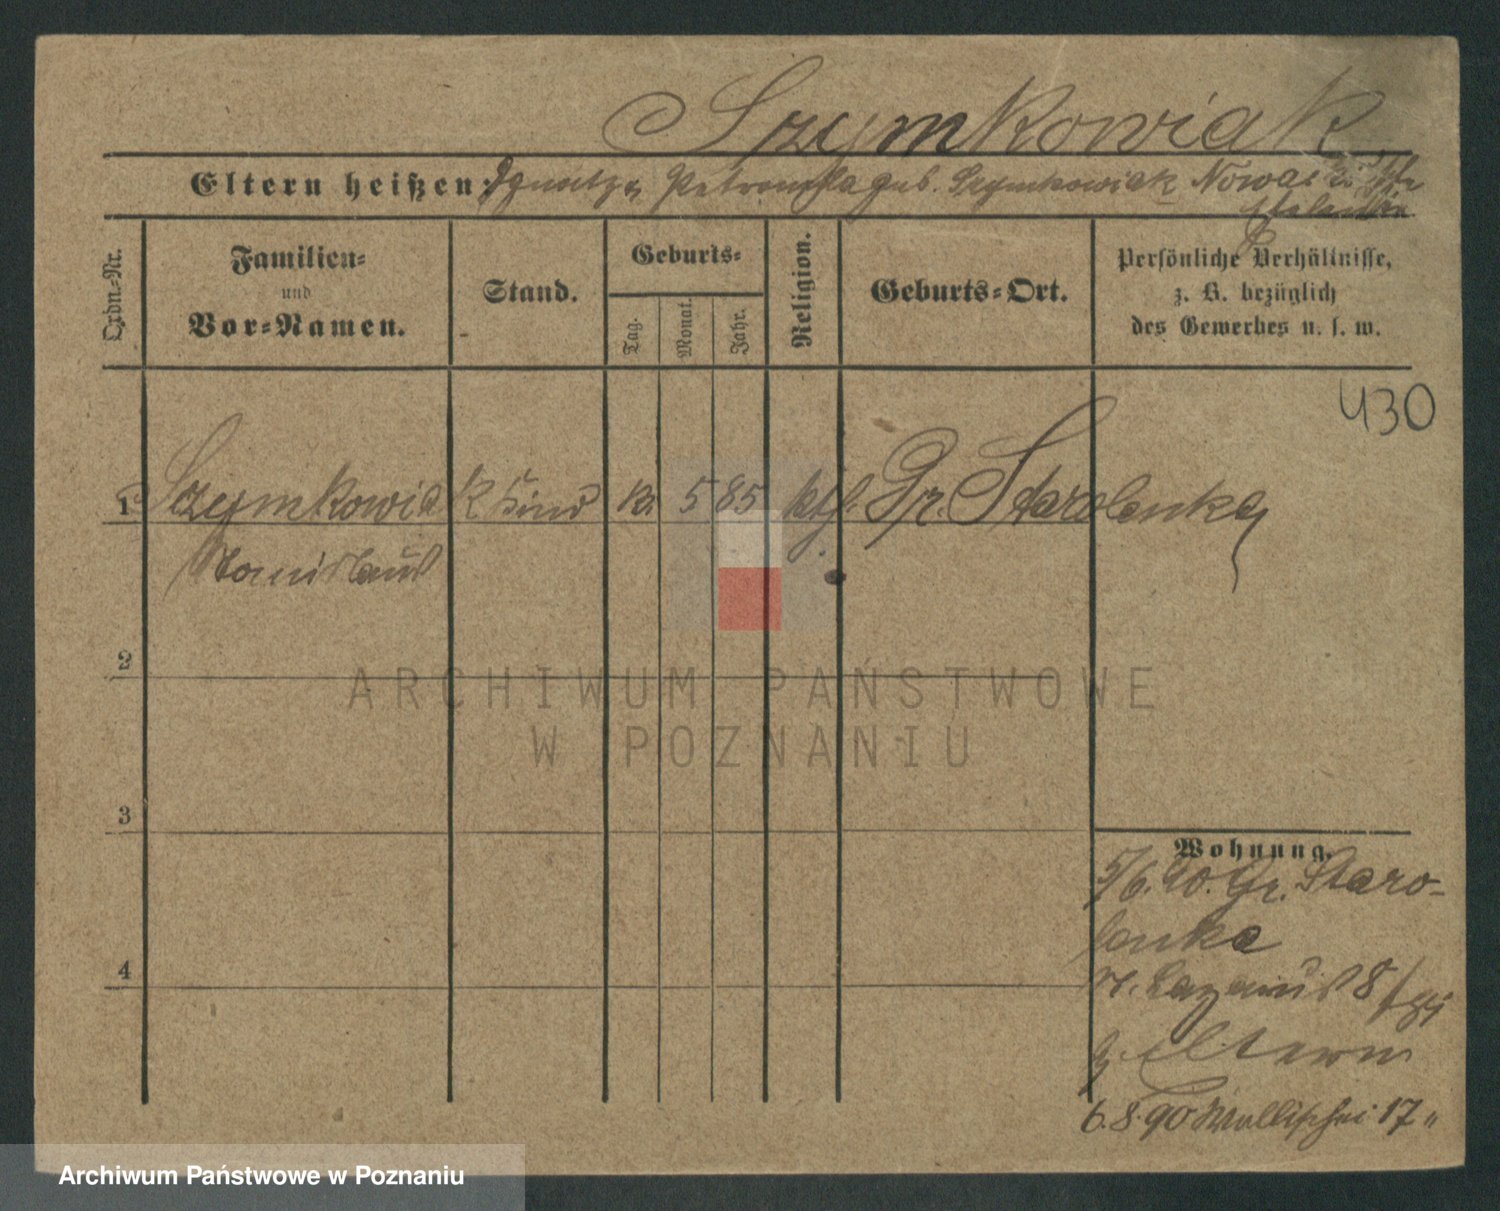 Szymkowiak
Eltern heißen: Ignatz u. Petronella geb. Szymkowiak Nowac
Ordn.-Nr.
Familien-
und
Vor-Namen.
Stand.
Geburts-
Tag.
Monat.
Jahr.
Religion.
Geburts-Ort.
Persönliche Verhältnisse,
z. B. bezüglich
des Gewerbes u. s. w.
430
1 Szymkowiak Kind 5 85 kth. Gr. Starolenka
Stanislaus
2
ARCHIWUM PAŃSTWOWE
W POZNANIU
3
Wohnung.
5/6. 90. Gr. Staro-
lenka
St. Lazarus 8
z. Eltern
4
6.8.90 Wallischei 17
Archiwum Państwowe w Poznaniu